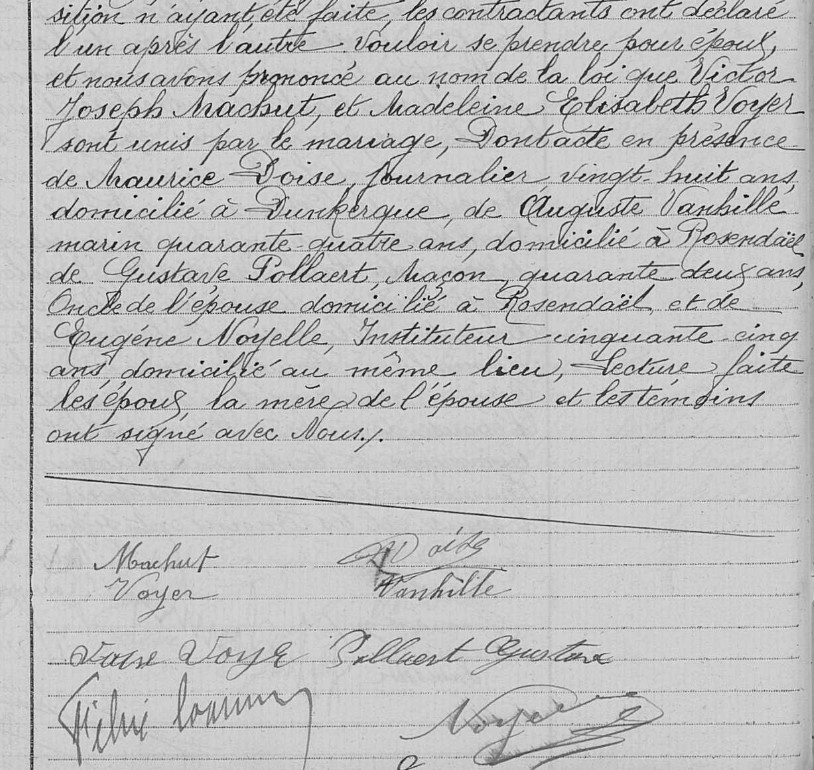 sition n'ayant été faite, les contractants ont déclaré
l'un après l'autre vouloir se prendre pour époux,
et nous avons prononcé au nom de la loi que Victor
Joseph Machut, et Madeleine Elisabeth Voyer
sont unis par le mariage, Dont acte en présence
de Maurice Doise, journalier vingt-huit ans,
domicilié à Dunkerque, de Auguste Vanhille
marin quarante-quatre ans, domicilié à Rosendaël
de Gustave Pollaert, Maçon, quarante deux ans,
Oncle de l'épouse domicilié à Rosendaël, et de
Eugéne Noyelle, Instituteur cinquante-cinq
ans, domicilié au même lieu, Lecture faite
les époux, la mère de l'épouse et les témoins
ont signé avec Nous./.
Machut Doise
Voyer Vanhille
Pollaert Gustave